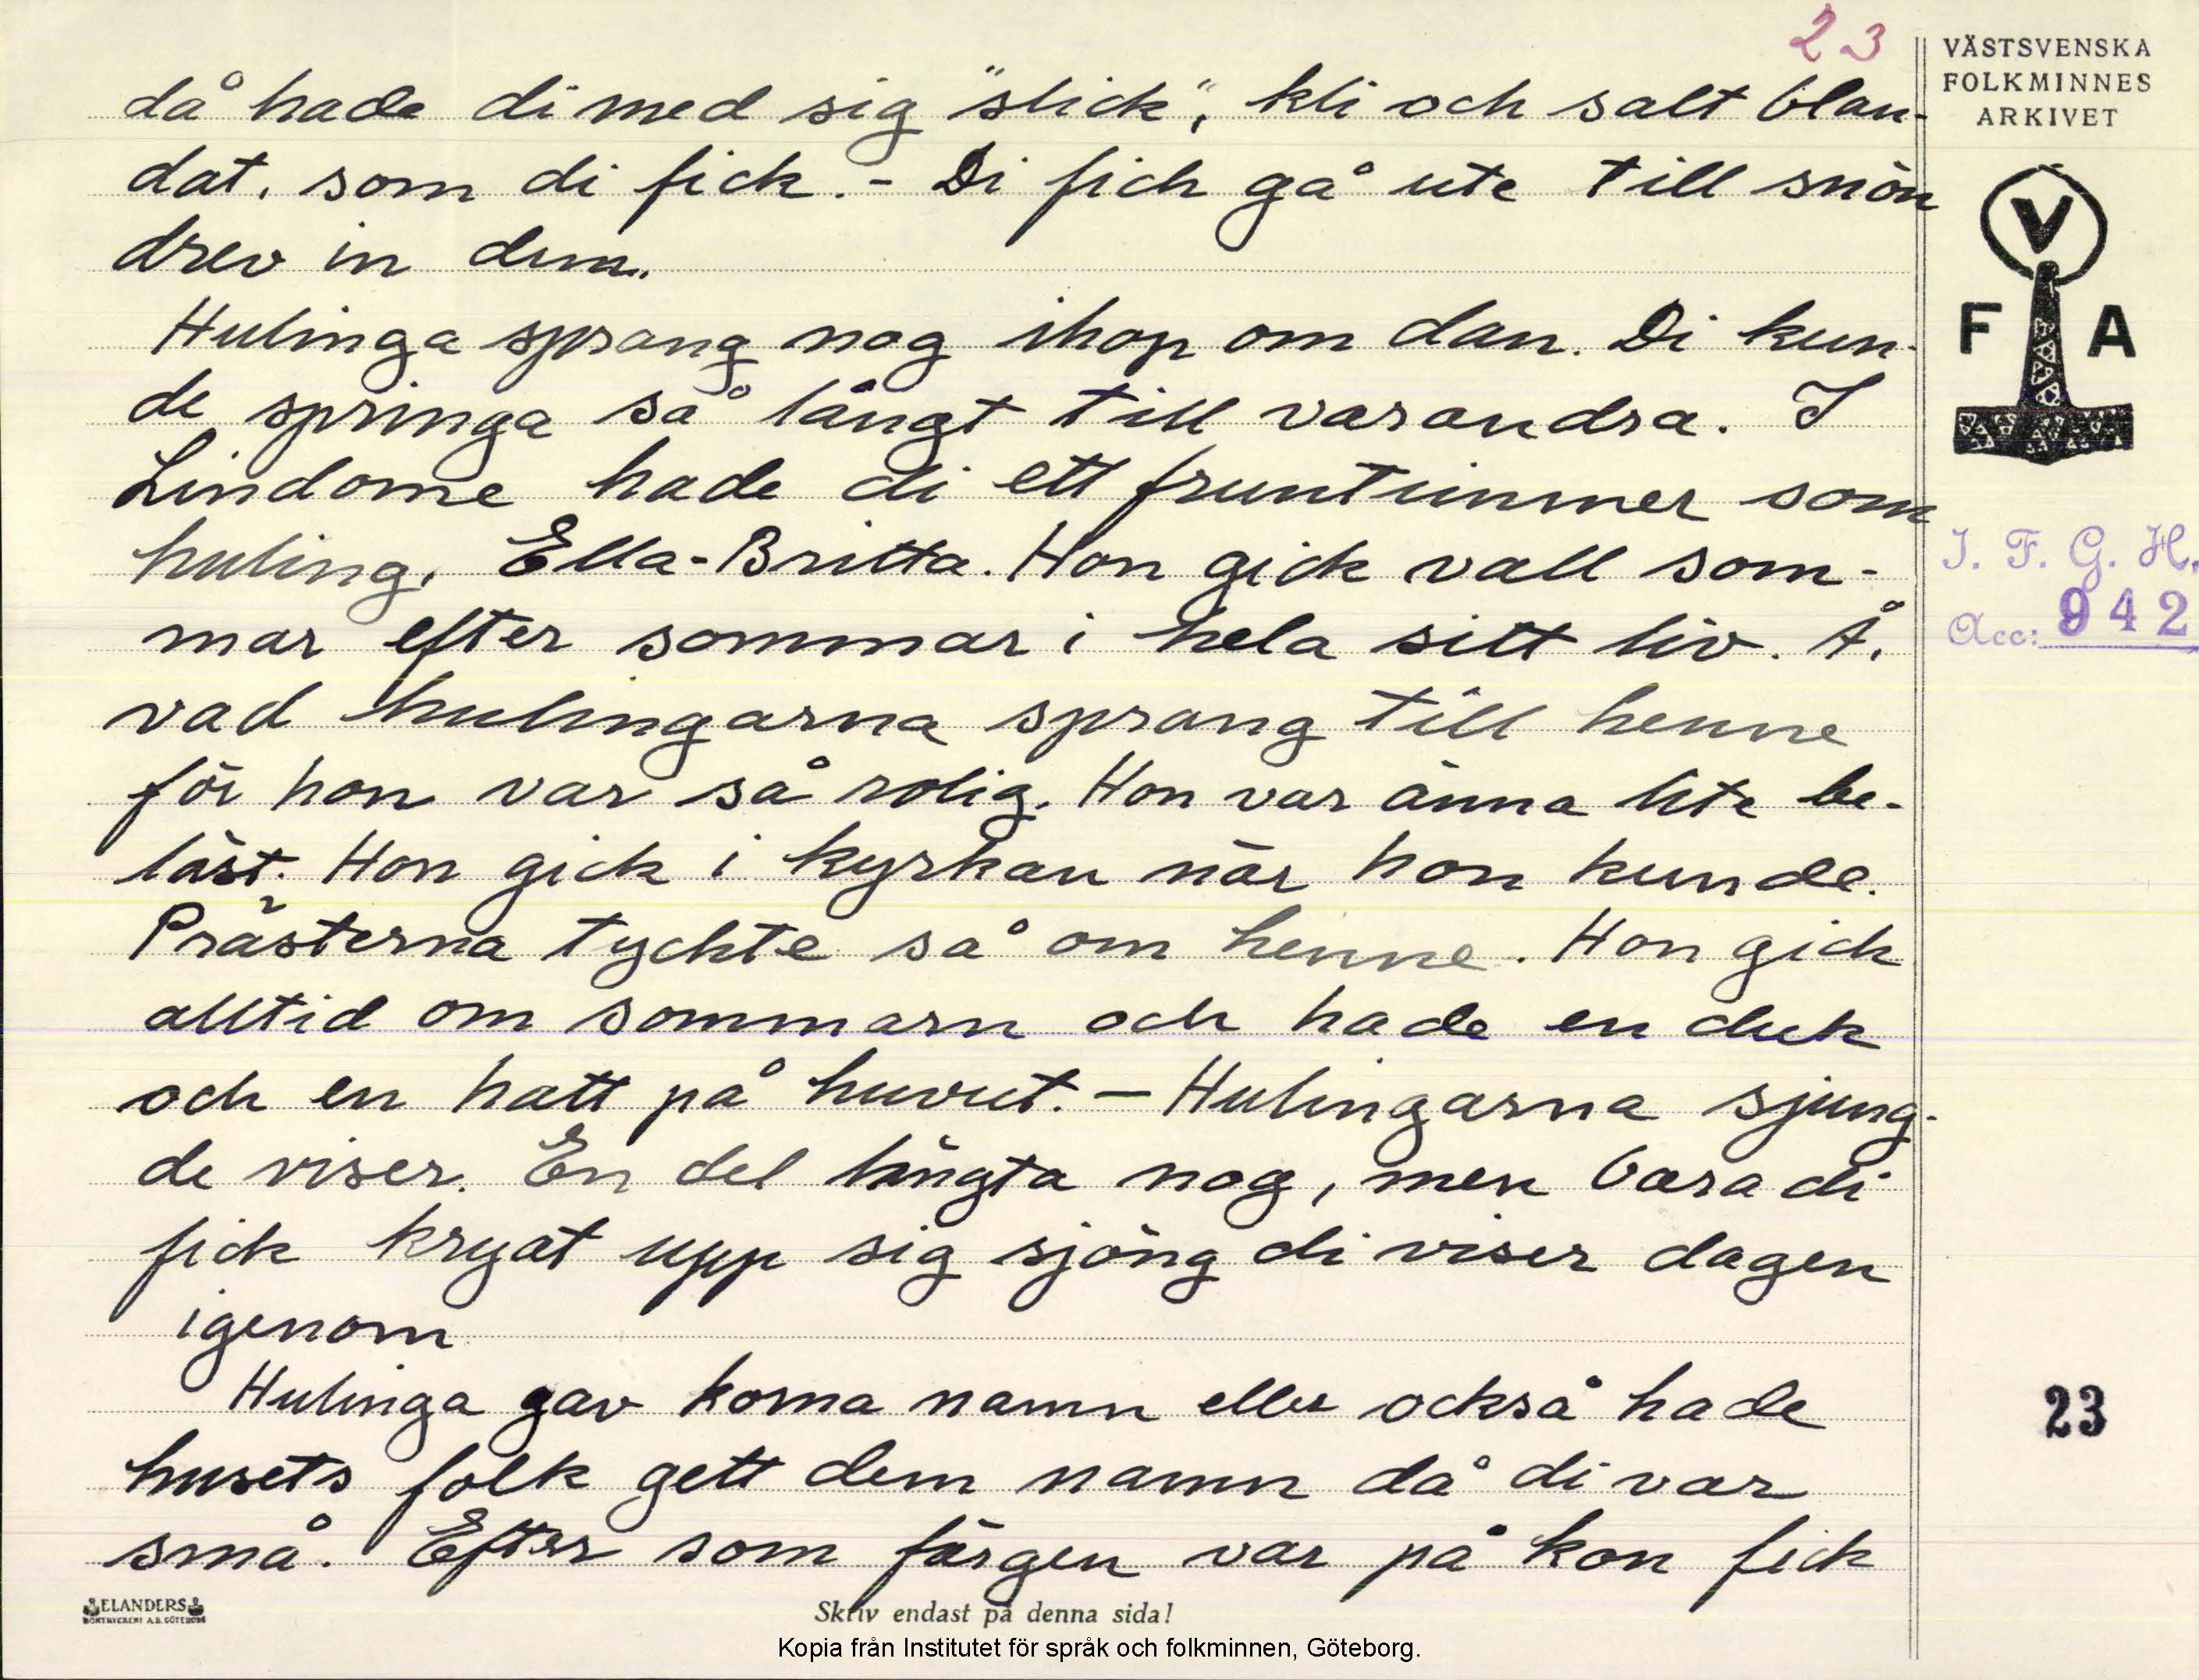 23
då hade di med sig "slick", kli och salt blan-
dat, som di fick. - Di fick gå ute till snön
drev in dem.
Hulinga sprang nog ihop om dan. Di kun-
de springa så långt till varandra. I
Lindome hade di ett fruntimmer som
huling, Ella-Britta. Hon gick vall som-
mar efter sommar i hela sitt liv. Å,
vad hulingarna sprang till henne
för hon var så rolig. Hon var änna lite be-
läst. Hon gick i kyrkan när hon kunde.
Prästerna tyckte så om henne. Hon gick
alltid om sommarn och hade en duk
och en hatt på huvut. - Hulingarna sjung-
de viser. En del längta nog, men bara di
fick kryat upp sig sjöng di viser dagen
igenom
Hulinga gav korna namn eller också hade
husets folk gett dem namn då di var
små. Efter som färgen var på kon fick
VÄSTSVENSKA
FOLKMINNES
ARKIVET
V
F A
I. F. G. H.
Acc: 942
23
ELANDERS
BOKTRYCKERI A.B. GÖTEBORG
Skriv endast på denna sida!
Kopia från Institutet för språk och folkminnen, Göteborg.